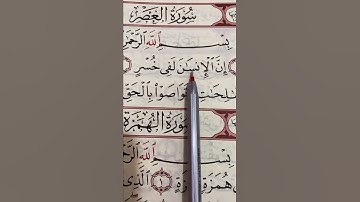 سُورَةُ الْعَصْرِ
بِسْمِ اللَّهِ الرَّحْمَٰ
إِنَّ الْإِنسَٰنَ لَفِى خُسْرٍ
لِحَٰتِ وَتَوَاصَوْا۟ بِالْحَقِّ
سُورَةُ الْهُمَزَةِ
بِسْمِ اللَّهِ الرَّحْ
هُمَزَةٍ ١ الَّذِى